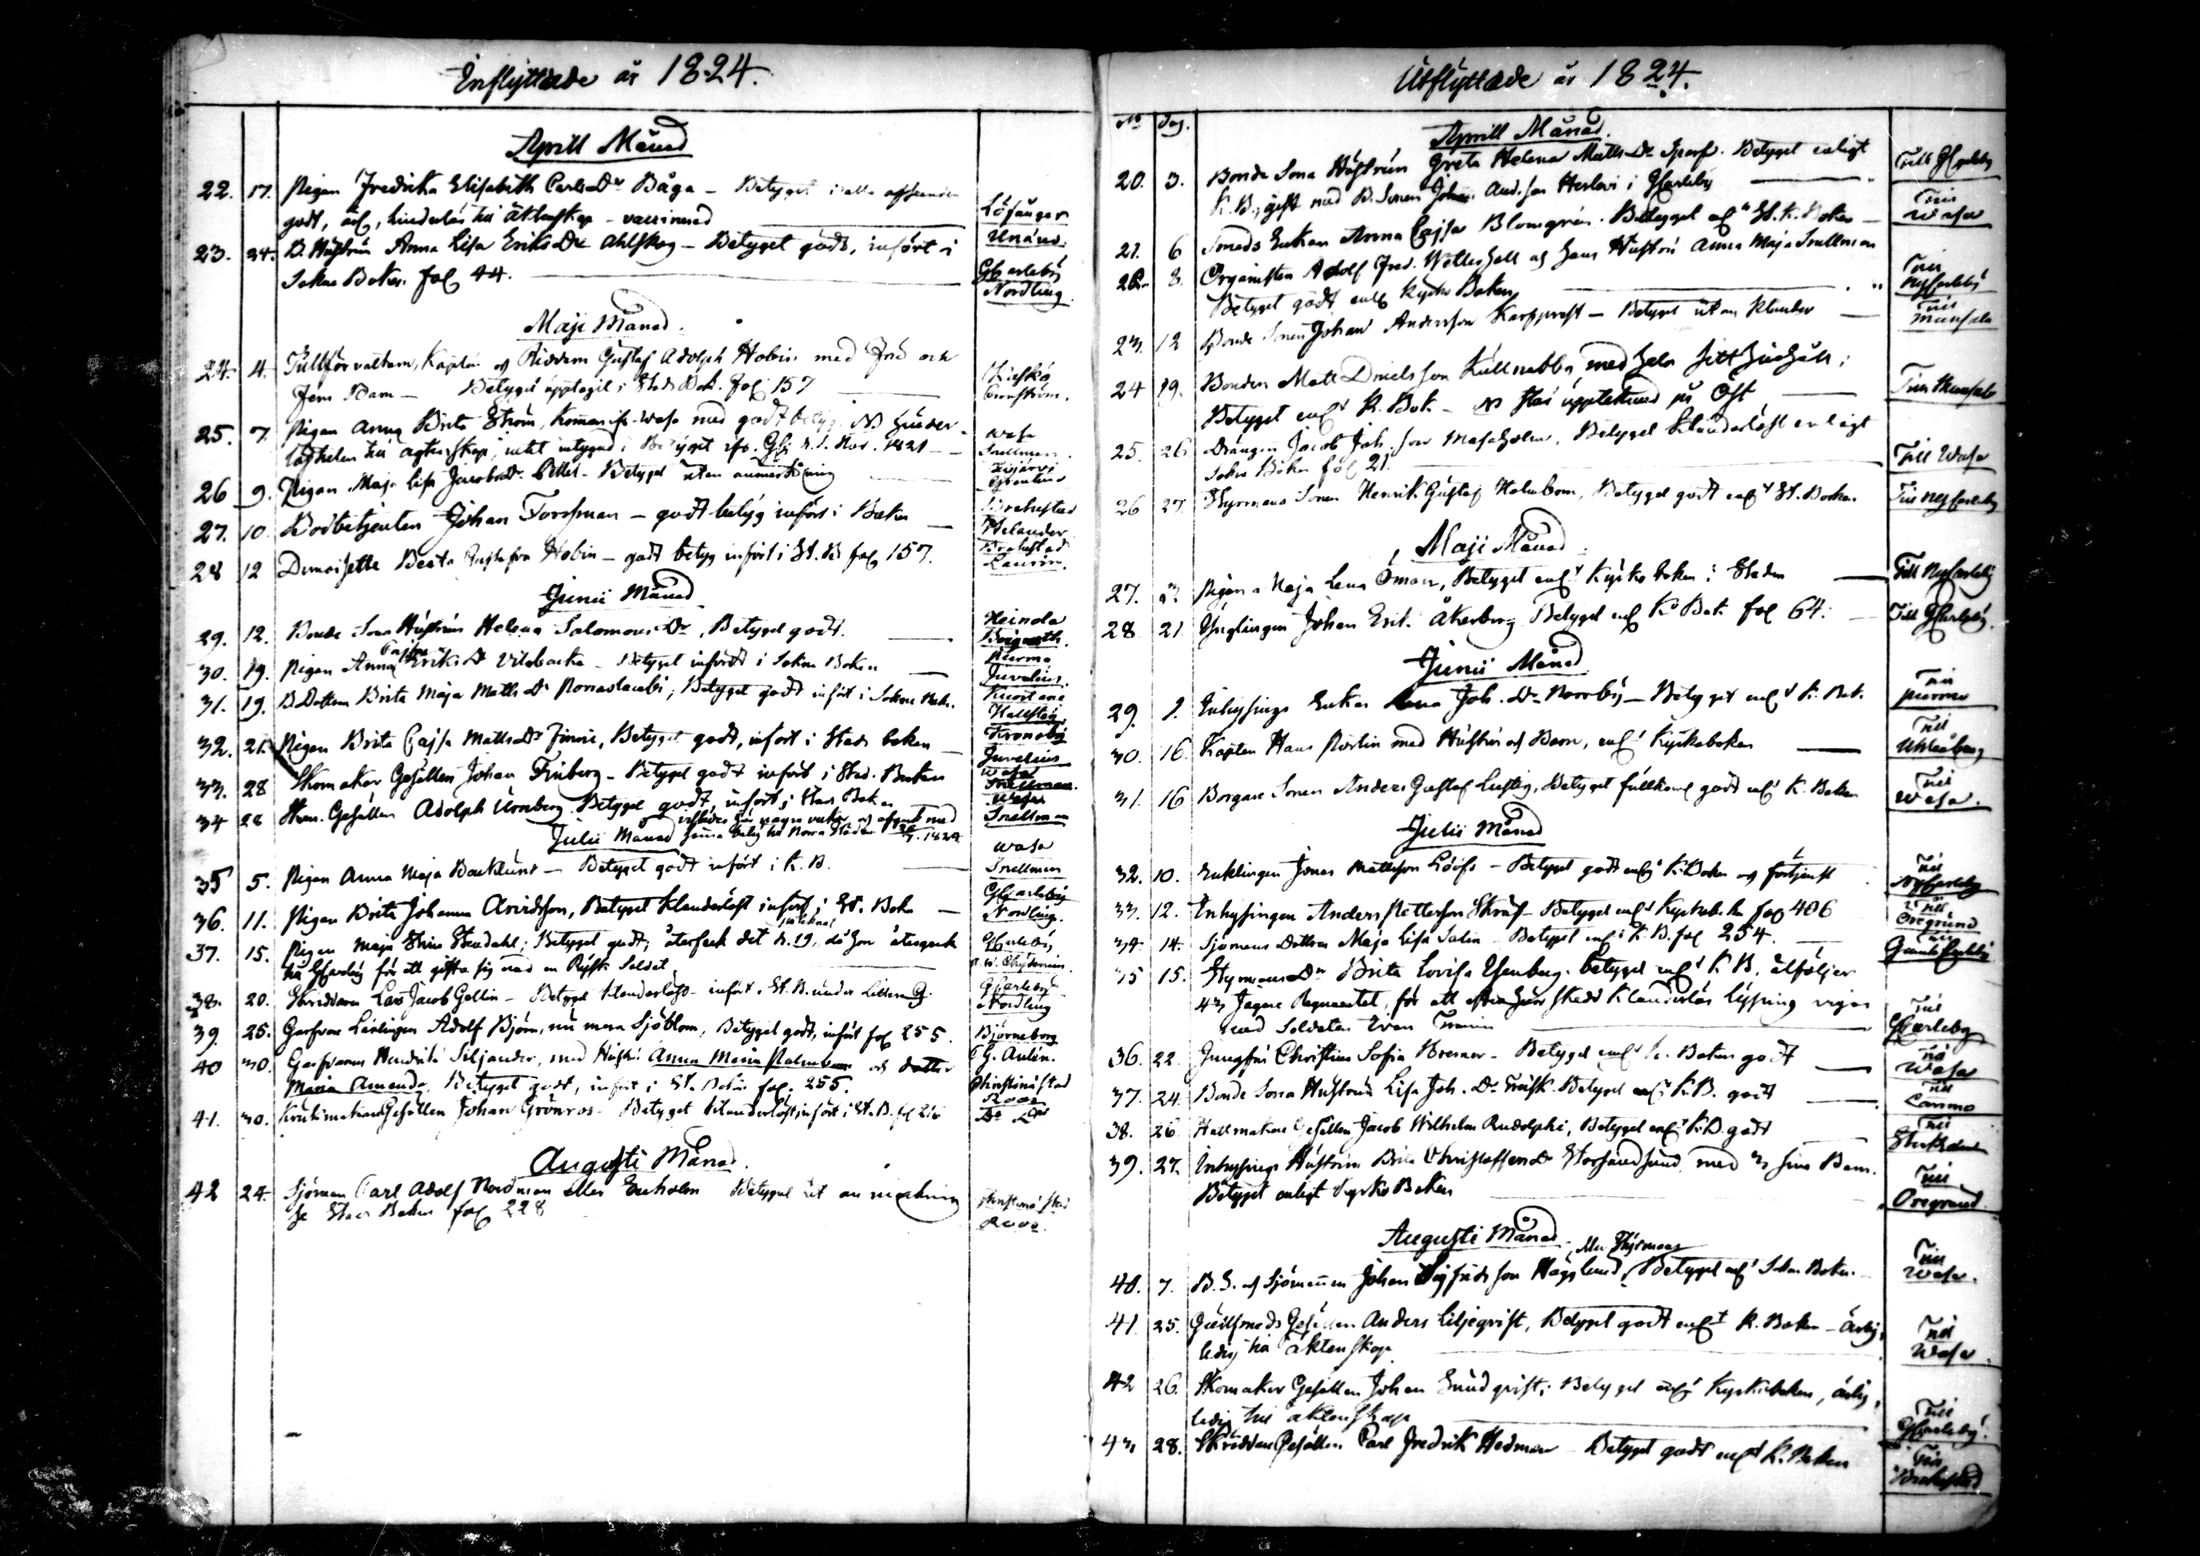 Inflyttade år 1824.
Aprill Månad
22. 17. Pigan Fredrika Elisabeth Carlsdr Båga - Betyget
godt, ärl., hinderlös till äktenskap - vaccinerad
Löfånger
Umånd.
23. 24. B. Hustrun Anna Lisa Eriksdr Ahlskog - Betyget godt, infört i
Sokne Boken fol 44.
GCarleby
Nordling.
Maji Månad.
24. 4. Tullförvaltaren, Kapten och Riddaren Gustaf Adolph Hobin med Fru och
Fem Barn - Betyget upptagit i Stads Bok. fol 157
25. 7. Pigan Anna Brita Ström, Kommen ifr. Wasa med godt betyg. NB hinder-
lösheten till ägtenskap, intet intygad i Betyget ifr. d. 1. Nov. 1821
Wasa
Snellman.
26 9. Pigan Maja Lisa Jacobsdr - Betyget utan anmärkning
27. 10. Bodbetjenten Johan Forssman - godt betyg infört i Boken
Brahestad
Helander
28 12 Demoiselle Beata Gustafva Hobin - godt betyg infört i St. B. fol 157.
Brahestad
Junii Månad
29. 12. Bonde Sona Hustrun Helena Salomonsdr, Betyget godt.
Heinola
30. 19. Pigan Anna Cajsa Eriksdr - Betyget infördt i Sokne Boken
Purmo
Juvelius.
31. 19. B. Dottren Brita Maja Mattsdr, Betyget godt infört i Sokne Bok.
Kuortane
32. 21. Pigan Brita Cajsa Mattsdr Finne, Betyget godt, infört i Stads boken
Kronoby
Juvelius
33. 28 Skomakar Gesällen Johan Finberg - Betyget godt infört i Stad. Boken
Wasa
Snellman.
34 28 Skom. Gesällen Adolph Ürnberg. Betyget godt, infört i Stads Boken
Wasa
Snellman
Julii Månad
35 5. Pigan Anna Maja Backlund - Betyget godt infört i K. B.
Wasa
Snellman
36. 11. Pigan Brita Johanna Arvidsson, Betyget klanderlöst infört i St. Boken
GCarleby
Nordling.
37. 15. Pigan Maja Stina Stendahl; Betyget godt; återfick det d. 19, då hon återgick
till GCarleby för att gifta sig med en Rysk Soldat
GCarleby
38. 20. Skräddaren Lars Jacob Gellin - Betyget klanderlöst - infört i St. B. under Littera G.
GCarleby
Nordling
39. 25. Garfvare Lärlingen Adolf Björn, nu mera Sjöblom, Betyget godt, infört fol 255.
Björneborg
G. Avlén.
40 30. Garfvaren Hendrik Siljander, med Hustru Anna Maria Palmboom och dotter
Maria Amanda. Betyget godt, infört i St. Boken fol. 255.
Christinæstad
Roos
41. 30. KrukmakareGesällen Johan Grönros - Betyget klanderlöst, infört i St. B. fol 216
Do Do
Augusti Månad.
42 24. Sjöman Carl Adolf Nordman eller Enholm Betyget utan märkning
se Stads Boken fol 228
Christinæstad
Roos.
Utflyttade år 1824.
No Dag.
Aprill Månad.
20. 3. Bonde Sona Hustrun Greta Helena Mattsdr Sparf. Betyget enligt
K. B., gift med B. Sonen Johan Andersson Herlevi i GCarleby
Till GCarleby
21. 6 Smeds Enkan Anna Cajsa Blomgren. Betyget enl. St. K. Boken
Till Wasa
22. 8. Organisten Adolf Fred. och hans Hustru Anna Maja Snellman
Betyget godt enl. kyrko Boken
Till NyCarleby
23. 12 Bonde Sonen Johan Andersson - Betyget utan klander
Till Munsala
24 19. Bonden Matts Danielsson Källnabba, med hela sitt hushåll;
Betyget enlt K. Bok.
Till Munsala
25. 26 Drängen Jacob Joh.son Masaholm, Betyget klanderlöst enligt
Sokne Boken fol 21.
Till Wasa
26 27. Styrmans Sonen Henrik Gustaf Holmbom, Betyget godt enlt St. Boken
Till NyCarleby
Maji Månad.
27. 2. Pigan Maja Lena Öman, Betyget enlt Kyrko boken i Staden
Till NyCarleby
28 21 Ynglingen Johan Erik Åkerberg Betyget enlt Ko Bok. fol 64.
Till GCarleby.
Junii Månad
29. 9. Inhysings Enkan Anna Joh. Dr Norrby - Betyget enlt K. Bok.
Till Purmo
30. 16. Kapten Hans Rörlin med Hustru och Barn, enlt Kyrkoboken
Till Uhleåborg
31. 16 Borgare Sonen Anders Gustaf Lustig, Betyget fullkoml godt enlt K. Boken
Till Wasa.
Julii Månad
32. 10. Enklingen Jonas Mattsson Lööfs - Betyget godt enlt K. Boken och förtjenst
Till NyCarleby
33. 12. Inhysingen Anders Pettersson Skräf - Betyget enlt Kyrkobok. fol 406
Till Öregrund
34. 14. Sjömans Dottren Maja Lisa Salin - Betyget enlt K. B. fol 254.
Till GamlaCarleby
35 15. StyrmansDr Brita Lovisa Ysenberg. Betyget enlt K. B. åtföljer
Jägare Regementet, för att efter skedd klanderlös lysning vigas
med Soldaten Iwan
Till GCarleby
36. 22. Jungfru Christina Sofia Bremer - Betyget enlt K. Boken godt
Till Wasa
37. 24. Bonde Sona Hustrun Lisa Joh. Dr Träsk. Betyget enlt K. B. godt
Till Larsmo
38. 26 Hattmakare Gesällen Jacob Wilhelm Rudolphi, Betyget enlt K. B. godt
Till Stockholm
39. 27. Inhysings Hustrun Brita Christoffersdr Storsandsund med 2 sina Barn.
Betyget enligt Kyrko Boken
Till Öregrund
Augusti Månad
40. 7. B. S. och Sjömannen Johan Sigfridsson Häggland, Betyget enlt Sokne Boken.
Till Wasa.
41. 25. Guldsmeds Gesällen Anders Liljeqvist, Betyget godt enlt K. Boken - ärlig,
ledig till äktenskap
Till Wasa
42 26. Skomakar Gesällen Johan Sundqvist; Betyget enlt Kyrkoboken, ärlig,
ledig till äktenskap
Till GCarleby.
43. 28. Skräddare Gesällen Carl Fredrik Hedman - Betyget godt enlt K. Boken
Till Brahestad